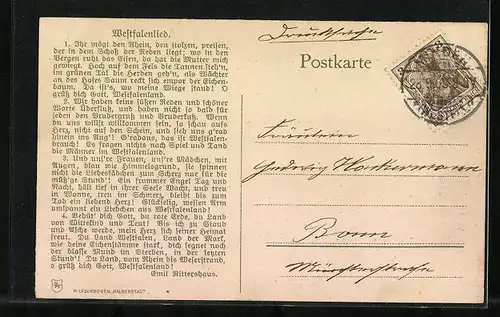 Westfalenlied.
1. Ihr mögt den Rhein, den stolzen, preisen,
der in dem Schoß der Reben liegt; wo in den
Bergen ruht das Eisen, da hat die Mutter mich
gewiegt. Hoch auf dem Fels die Tannen steh'n,
im grünen Tal die Herden geh'n, als Wächter
an des Hofes Saum reckt sich empor der Eichen-
baum. Da ist's, wo meine Wiege stand! O
grüß dich Gott, Westfalenland!
2. Wir haben keine süßen Reden und schöner
Worte Überfluß, und haben nicht so bald für
jeden den Brudergruß und Bruderkuß. Wenn
du uns willst willkommen sein, so schau aufs
Herz, nicht auf den Schein, und sieh uns g'rad
hinein ins Aug'! G'radaus, das ist Westfalen-
brauch! Es fragen nichts nach Spiel und Tand
die Männer im Westfalenland.
3. Und uns're Frauen, uns're Mädchen, mit
Augen, blau wie Himmelsgrund, sie spinnen
nicht die Liebesfädchen zum Scherz nur für die
müß'ge Stund'! Ein frommer Engel Tag und
Nacht, hält tief in ihrer Seele Wacht, und treu
in Wonne, treu im Schmerz, bleibt bis zum
Tod ein liebend Herz! Glückselig, wessen Arm
umspannt ein Liebchen aus Westfalenland!
4. Behüt' dich Gott, du rote Erde, du Land
von Wittekind und Teut! Bis ich zu Staub
und Asche werde, mein Herz sich seiner Heimat
freut. Du Land Westfalen, Land der Mark,
wie deine Eichenstämme stark, dich segnet noch
der blasse Mund im Sterben, in der letzten
Stund'! Du Land, vom Rhein bis Weserstrand,
o grüß dich Gott, Westfalenland!
Emil Rittershaus.
Drucksache
Postkarte
Fräulein
Hedwig
Bonn